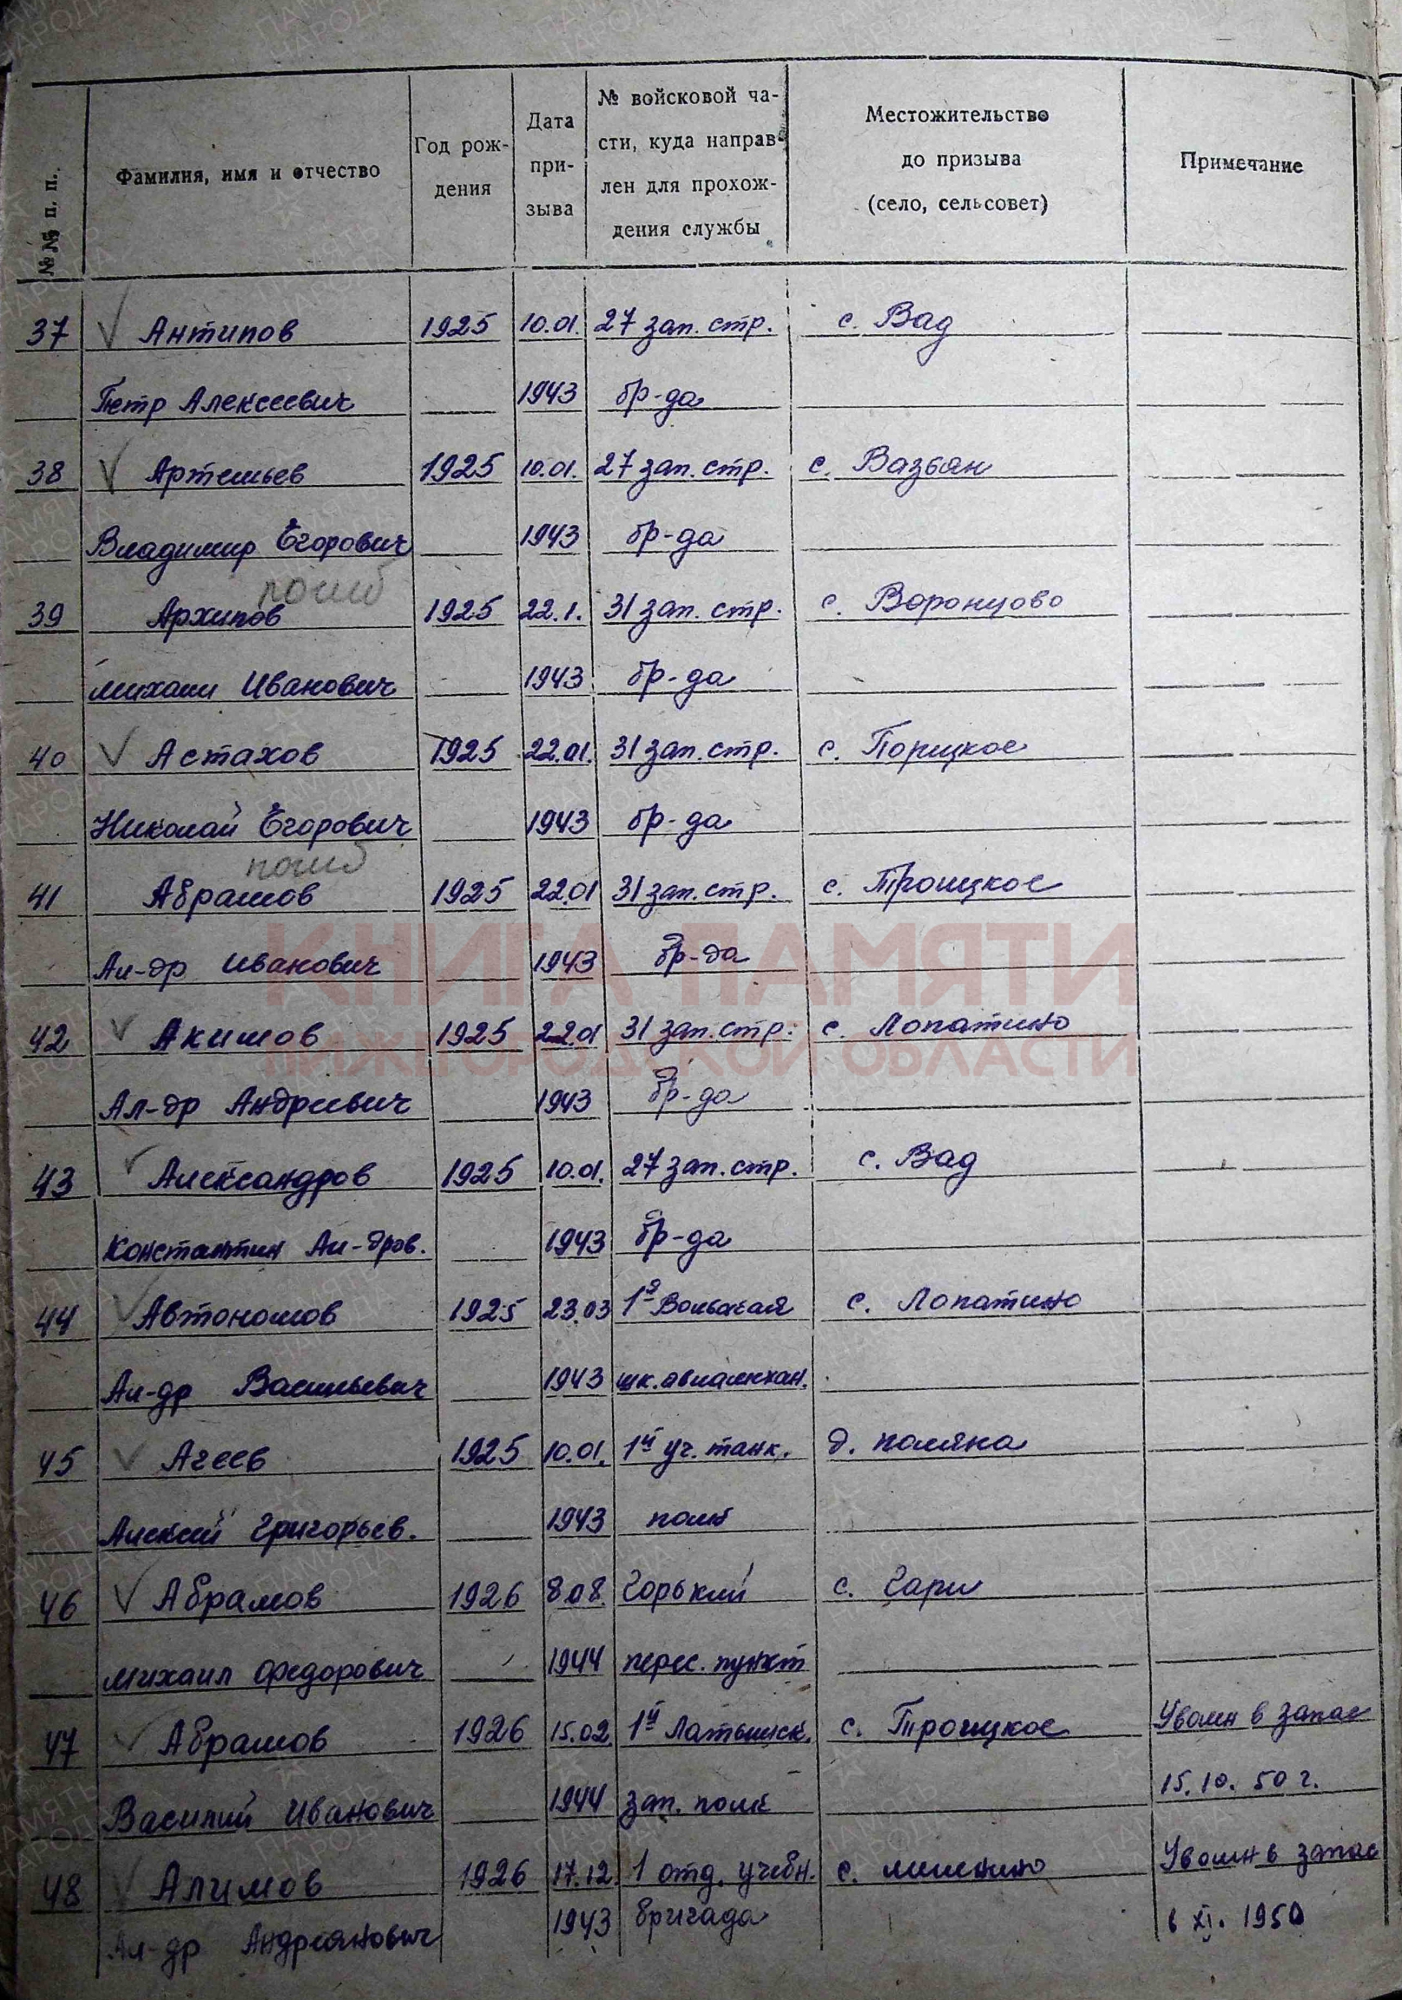 №№ п. п.
Фамилия, имя и отчество
Год рож-
дения
Дата
при-
зыва
№ войсковой ча-
сти, куда направ-
лен для прохож-
дения службы
Местожительство
до призыва
(село, сельсовет)
Примечание
37 √ Антипов 1925 10.01. 27 зап. стр. с. Вад
Петр Алексеевич 1943 бр-да
38 √ Артемьев 1925 10.01. 27 зап. стр. с. Вазьян
Владимир Егорович 1943 бр-да
погиб
39 Архипов 1925 22.1. 31 зап. стр. с. Воронцово
Михаил Иванович 1943 бр-да
40 √ Астахов 1925 22.01. 31 зап. стр. с. Порецкое
Николай Егорович 1943 бр-да
погиб
41 Абрамов 1925 22.01 31 зап. стр. с. Троицкое
Ал-др Иванович 1943 бр-да
42 √ Акимов 1925 22.01 31 зап. стр. с. Лопатино
Ал-др Андреевич 1943 бр-да
43 √ Александров 1925 10.01. 27 зап. стр. с. Вад
Константин Ал-дров. 1943 бр-да
44 √ Автономов 1925 23.03 1я Вольская с. Лопатино
Ал-др Васильевич 1943 шк. авиамехан.
45 √ Агеев 1925 10.01. 1й уч. танк. д. Поляна
Алексей Григорьев. 1943 полк
46 √ Абрамов 1926 8.08. Горький с. Гари
Михаил Федорович 1944 перес. пункт
47 √ Абрамов 1926 15.02. 1й Латышск. с. Троицкое Уволен в запас
Василий Иванович 1944 зап. полк 15.10.50 г.
48 √ Алимов 1926 17.12. 1 отд. учебн. с. Уволен в запас
Ал-др Андреянович 1943 бригада в XI. 1950
КНИГА ПАМЯТИ
НИЖЕГОРОДСКОЙ ОБЛАСТИ
ПАМЯТЬ НАРОДА